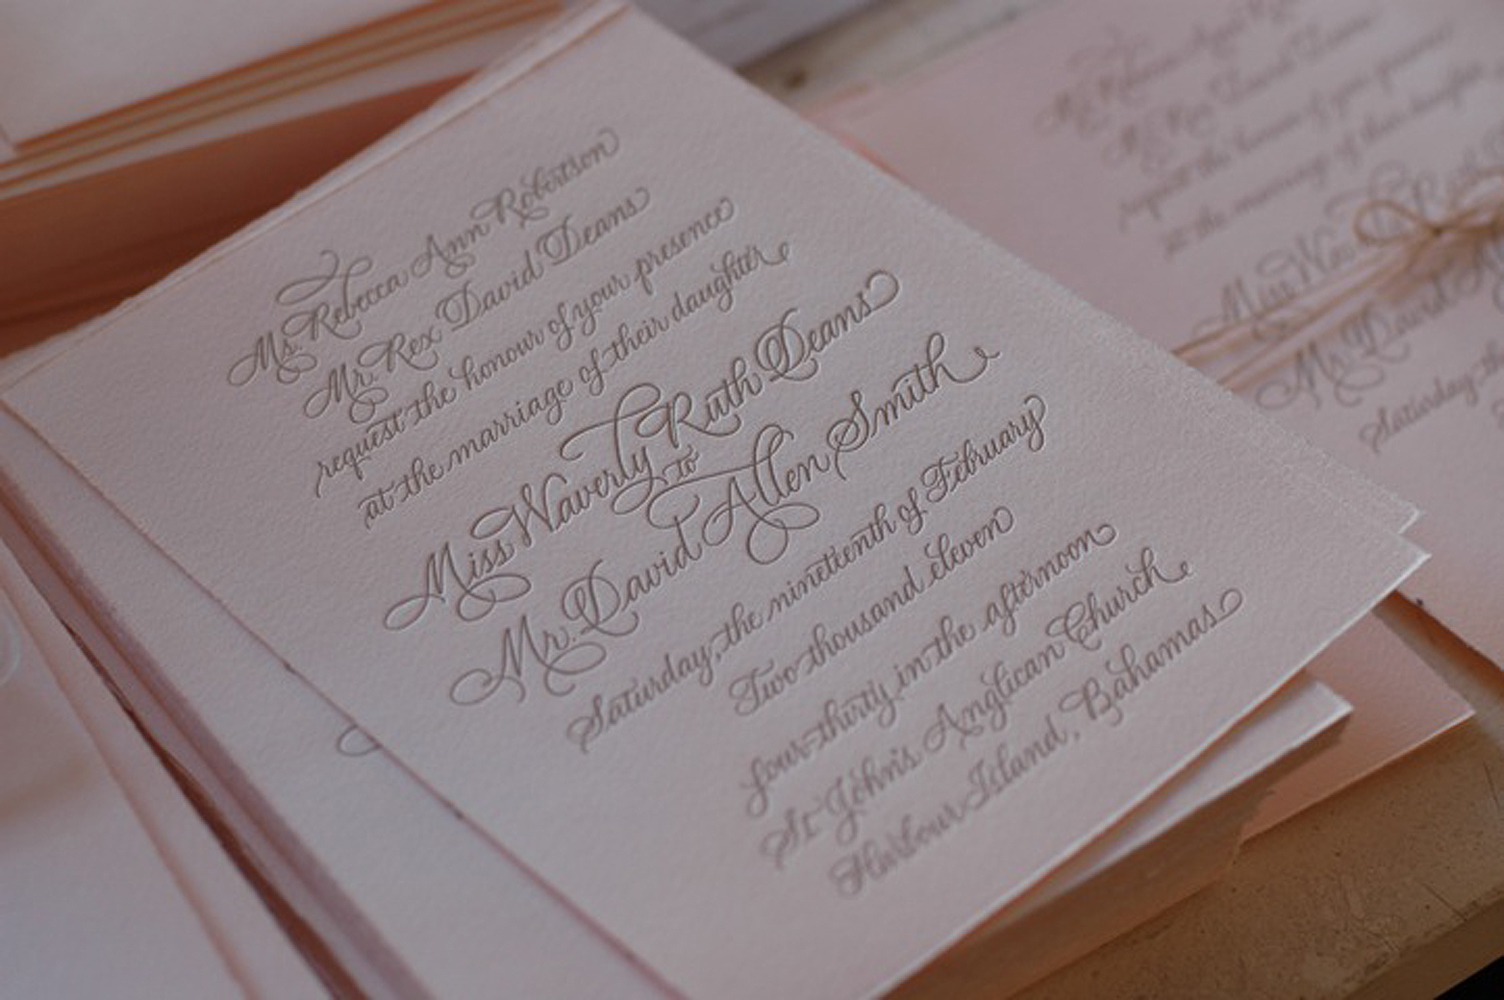 Ms. Rebecca Ann Robertson
Mr. Rex David Deans
request the honour of your presence
at the marriage of their daughter
Miss Waverly Ruth Deans
to
Mr. David Allen Smith
Saturday, the nineteenth of February
Two thousand eleven
four-thirty in the afternoon
St John's Anglican Church
Harbour Island, Bahamas
request the honour of your presence
at the marriage of their daughter
Miss
Mr. David
Saturday, the